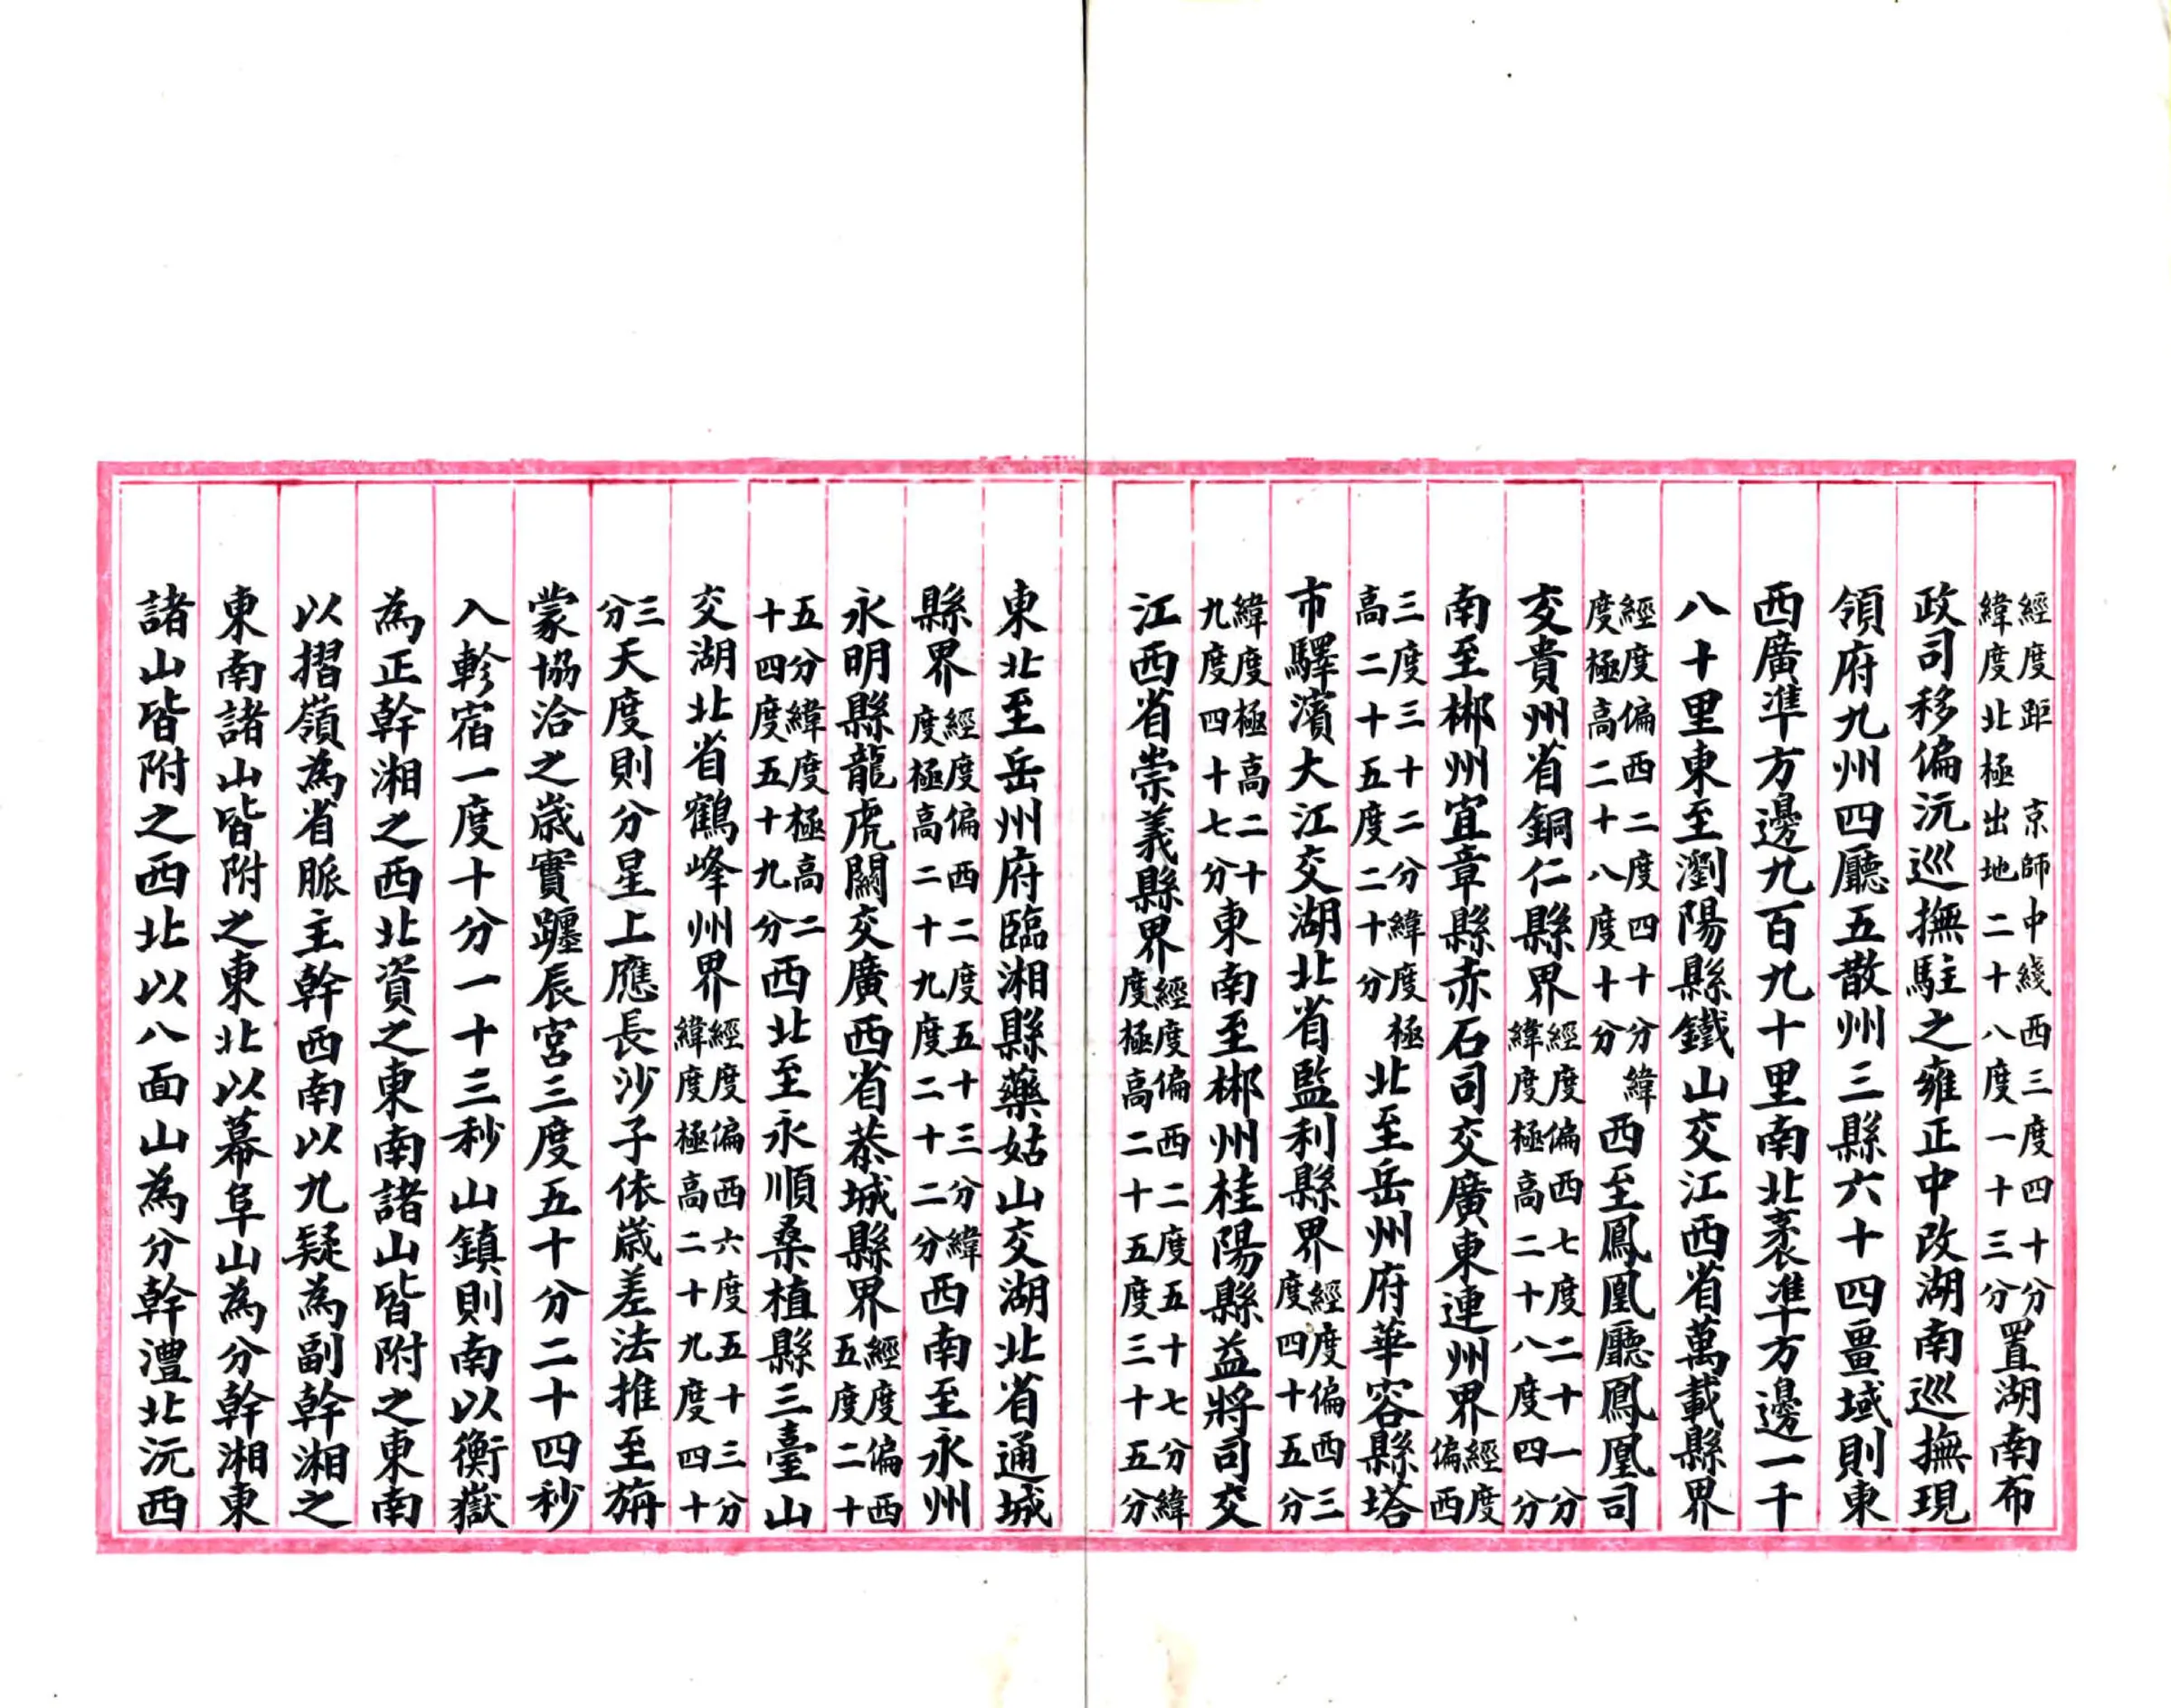 經度距 京師中綫西三度四十分緯度北極出地二十八度一十三分置湖南布
政司移偏沅巡撫駐之雍正中改湖南巡撫現
領府九州四廳五散州三縣六十四畺域則東
西廣準方邊九百九十里南北袤準方邊一千
八十里東至瀏陽縣鐵山交江西省萬載縣界
經度偏西二度四十分緯度極高二十八度十分西至鳳凰廳鳳凰司
交貴州省銅仁縣界經度偏西七度二十一分緯度極高二十八度四分
南至郴州宜章縣赤石司交廣東連州界經度偏西
三度三十二分緯度極高二十五度二十分北至岳州府華容縣塔
市驛濱大江交湖北省監利縣界經度偏西三度四十五分
緯度極高二十九度四十七分東南至郴州桂陽縣益將司交
江西省崇義縣界經度偏西二度五十七分緯度極高二十五度三十五分
東北至岳州府臨湘縣藥姑山交湖北省通城
縣界經度偏西二度五十三分緯度極高二十九度二十二分西南至永州
永明縣龍虎關交廣西省恭城縣界經度偏西五度二十
五分緯度極高二十四度五十九分西北至永順桑植縣三臺山
交湖北省鶴峰州界經度偏西六度五十三分緯度極高二十九度四十
三分天度則分星上應長沙子依歲差法推至旃
蒙協洽之歲實躔辰宮三度五十分二十四秒
入軫宿一度十分一十三秒山鎮則南以衡嶽
為正幹湘之西北資之東南諸山皆附之東南
以摺嶺為省脈主幹西南以九疑為副幹湘之
東南諸山皆附之東北以幕阜山為分幹湘東
諸山皆附之西北以八面山為分幹澧北沅西